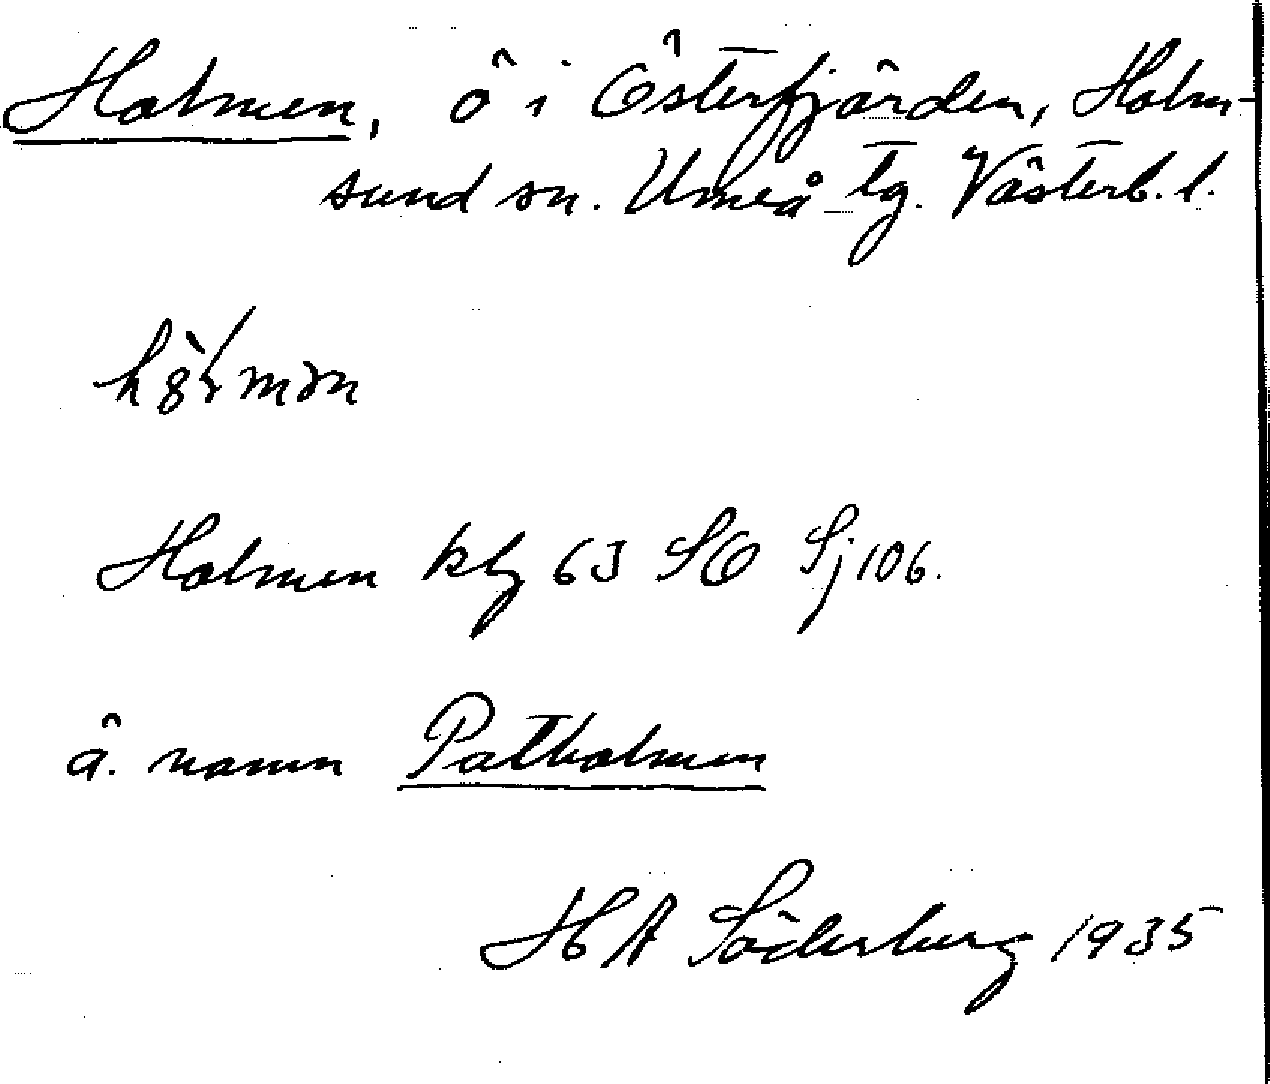 Holmen, ö i Österfjärden, Holm-
sund sn. Umeå tg. Västerb. l.
Holmen kbl 63 SO Sj 106.
ä. namn Patholmen
H A Söderberg 1935